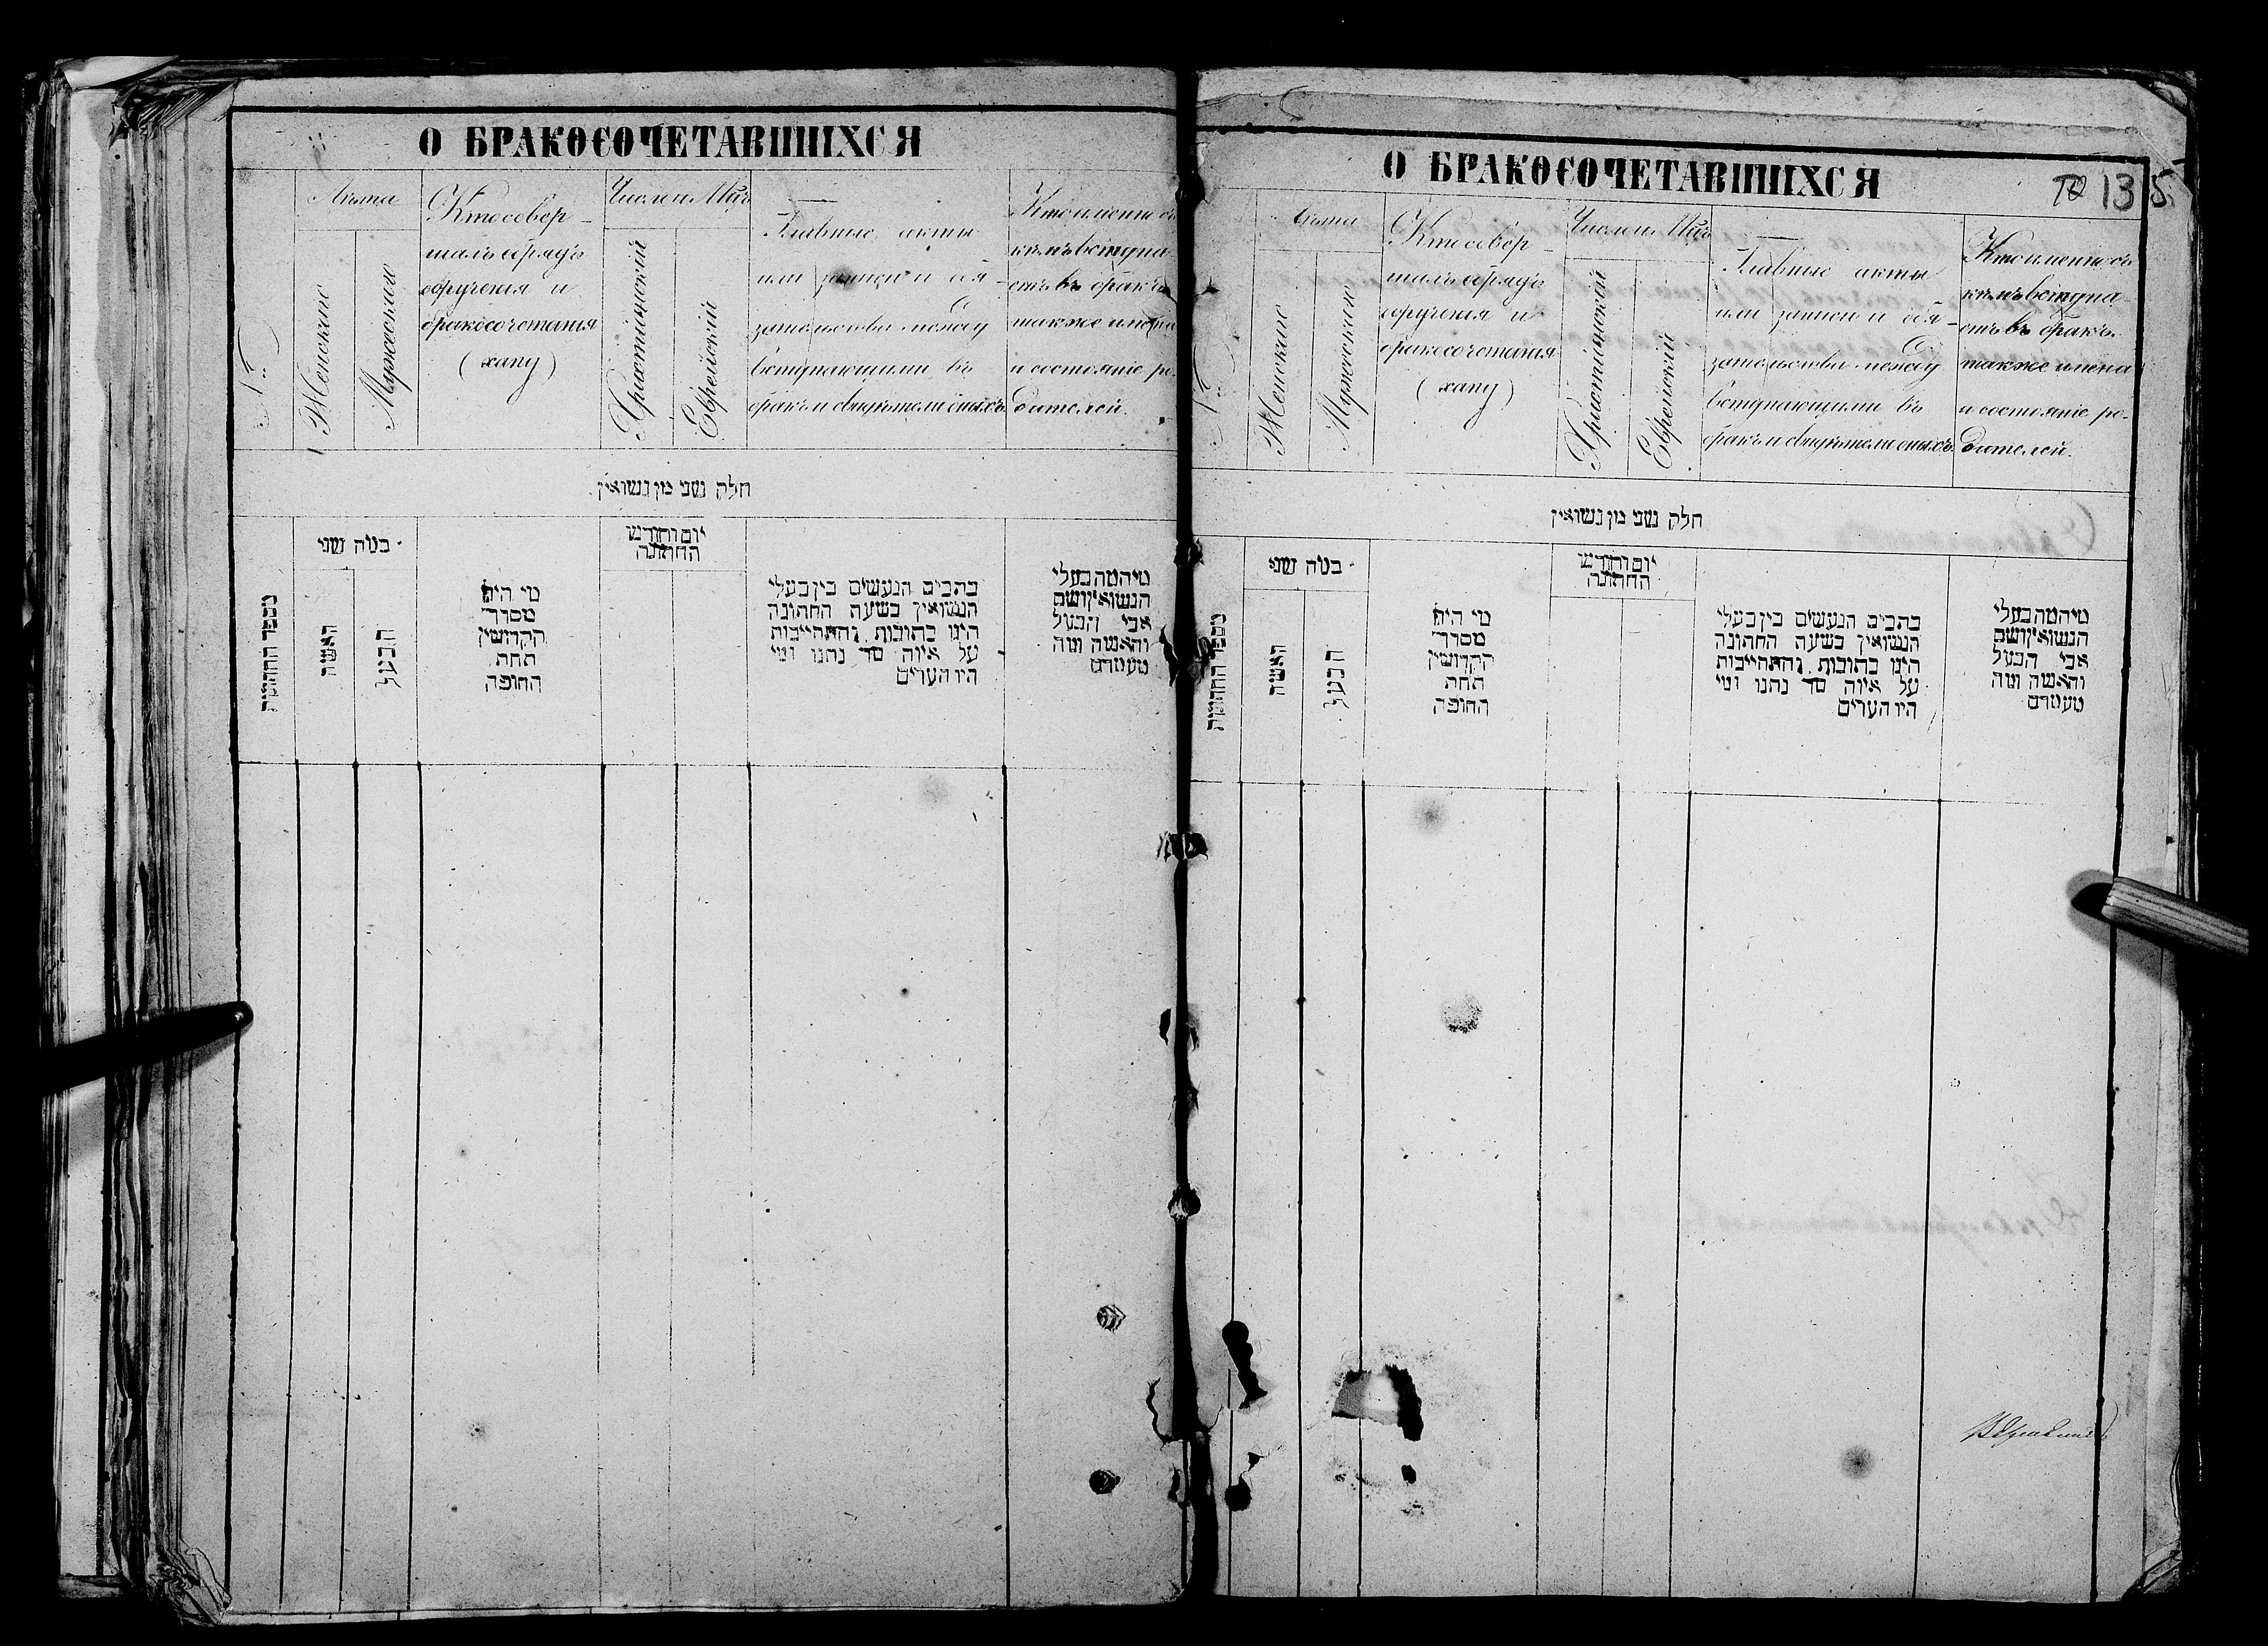 О БРАКОСОЧЕТАВШИХСЯ
№
Лѣта
Женскіе
Мужескіе
Кто совер-
шалъ обрядъ
обрученія и
бракосочетанія
(хапу)
Число и Мѣц
Христіянскій
Еврейскій
Главные акты
или записи и обя-
зательства между
вступающими въ
бракъ и свидѣтели оныхъ.
Кто именно съ
кѣмъ вступа-
етъ въ бракъ
также имена
и состояніе ро-
дителей.
חלק שני מן נשואין
מספר החתונות
כמה שני
האשה
הבעל
מי היה
מסדר
הקדושין
תחת
החופה
יום וחודש
החתונה
כתבים הנעשים בין בעלי
הנשואין בשעת החתונה
היינו כתובות והתחייבות
על איזה סך נתנו ומי
היו העדים
מי המה בעלי
הנשואין ושם
אבי הבעל
והאשה ומה
מעמדם
О БРАКОСОЧЕТАВШИХСЯ
135
№
Лѣта
Женскіе
Мужескіе
Кто совер-
шалъ обрядъ
обрученія и
бракосочетанія
(хапу)
Число и Мѣц
Христіянскій
Еврейскій
Главные акты
или записи и обя-
зательства между
вступающими въ
бракъ и свидѣтели оныхъ.
Кто именно съ
кѣмъ вступа-
етъ въ бракъ.
также имена
и состояніе ро-
дителей.
חלק שני מן נשואין
מספר החתונות
כמה שני
האשה
הבעל
מי היה
מסדר
הקדושין
תחת
החופה
יום וחודש
החתונה
כתבים הנעשים בין בעלי
הנשואין בשעת החתונה
היינו כתובות והתחייבות
על איזה סך נתנו ומי
היו העדים
מי המה בעלי
הנשואין ושם
אבי הבעל
והאשה ומה
מעמדם